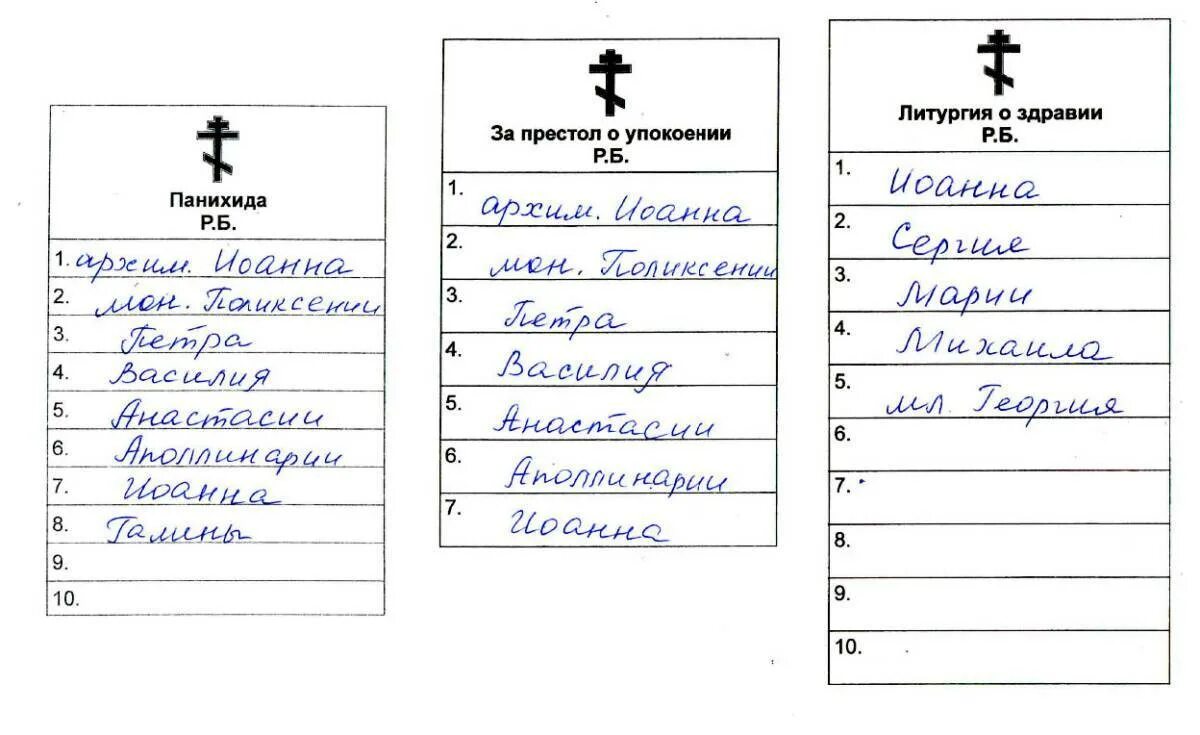 Панихида
Р.Б.
1. архим. Иоанна
2. мон. Поликсении
3. Петра
4. Василия
5. Анастасии
6. Аполлинарии
7. Иоанна
8. Галины
9.
10.
За престол о упокоении
Р.Б.
1. архим. Иоанна
2. мон. Поликсении
3. Петра
4. Василия
5. Анастасии
6. Аполлинарии
7. Иоанна
Литургия о здравии
Р.Б.
1. Иоанна
2. Сергия
3. Марии
4. Михаила
5. мл. Георгия
6.
7.
8.
9.
10.